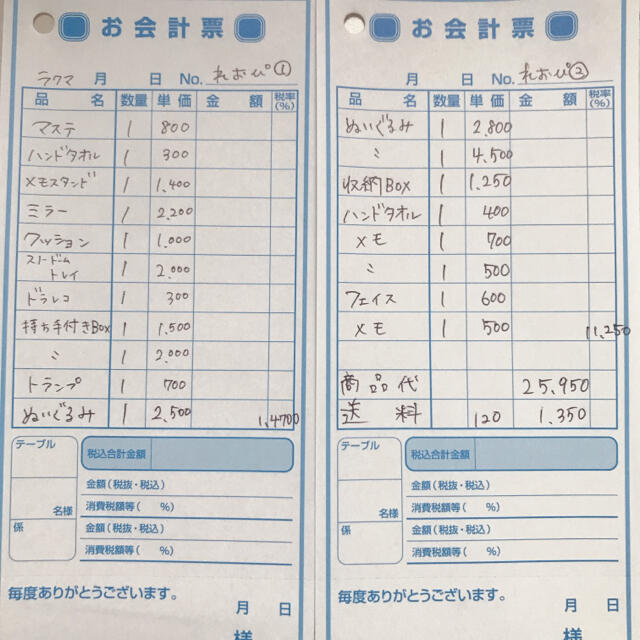 お会計票
ラクマ 月 日 No. れおぴ①
品名 数量 単価 金額 税率(%)
マステ 1 800
ハンドタオル 1 300
メモスタンド 1 1,400
ミラー 1 2,200
クッション 1 1,000
スノードームトレイ 1 2,000
ドラレコ 1 300
持ち手付きBox 1 1,500
〃 1 2,000
トランプ 1 700
ぬいぐるみ 1 2,500 1,4700
テーブル 税込合計金額
金額(税抜・税込)
名様 消費税額等( %)
係 金額(税抜・税込)
消費税額等( %)
毎度ありがとうございます。
月 日
様
お会計票
月 日 No. れおぴ②
品名 数量 単価 金額 税率(%)
ぬいぐるみ 1 2,800
〃 1 4,500
収納BOX 1 1,250
ハンドタオル 1 400
メモ 1 700
〃 1 500
フェイス 1 600
メモ 1 500 11,250
商品代 25,950
送料 120 1,350
テーブル 税込合計金額
金額(税抜・税込)
名様 消費税額等( %)
係 金額(税抜・税込)
消費税額等( %)
毎度ありがとうございます。
月 日
様